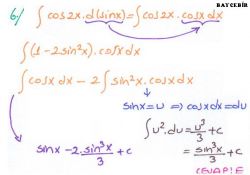 BAYCEBİR
6/ ∫cos2x.d(sinx)=∫cos2x.cosxdx
∫(1-2sin²x).cosxdx
∫cosxdx - 2∫sin²x.cosxdx
sinx=u ⇒ cosxdx=du
∫u².du=u³/3+c
sinx-2.sin³x/3+c
=sin³x/3+c
CEVAP:E